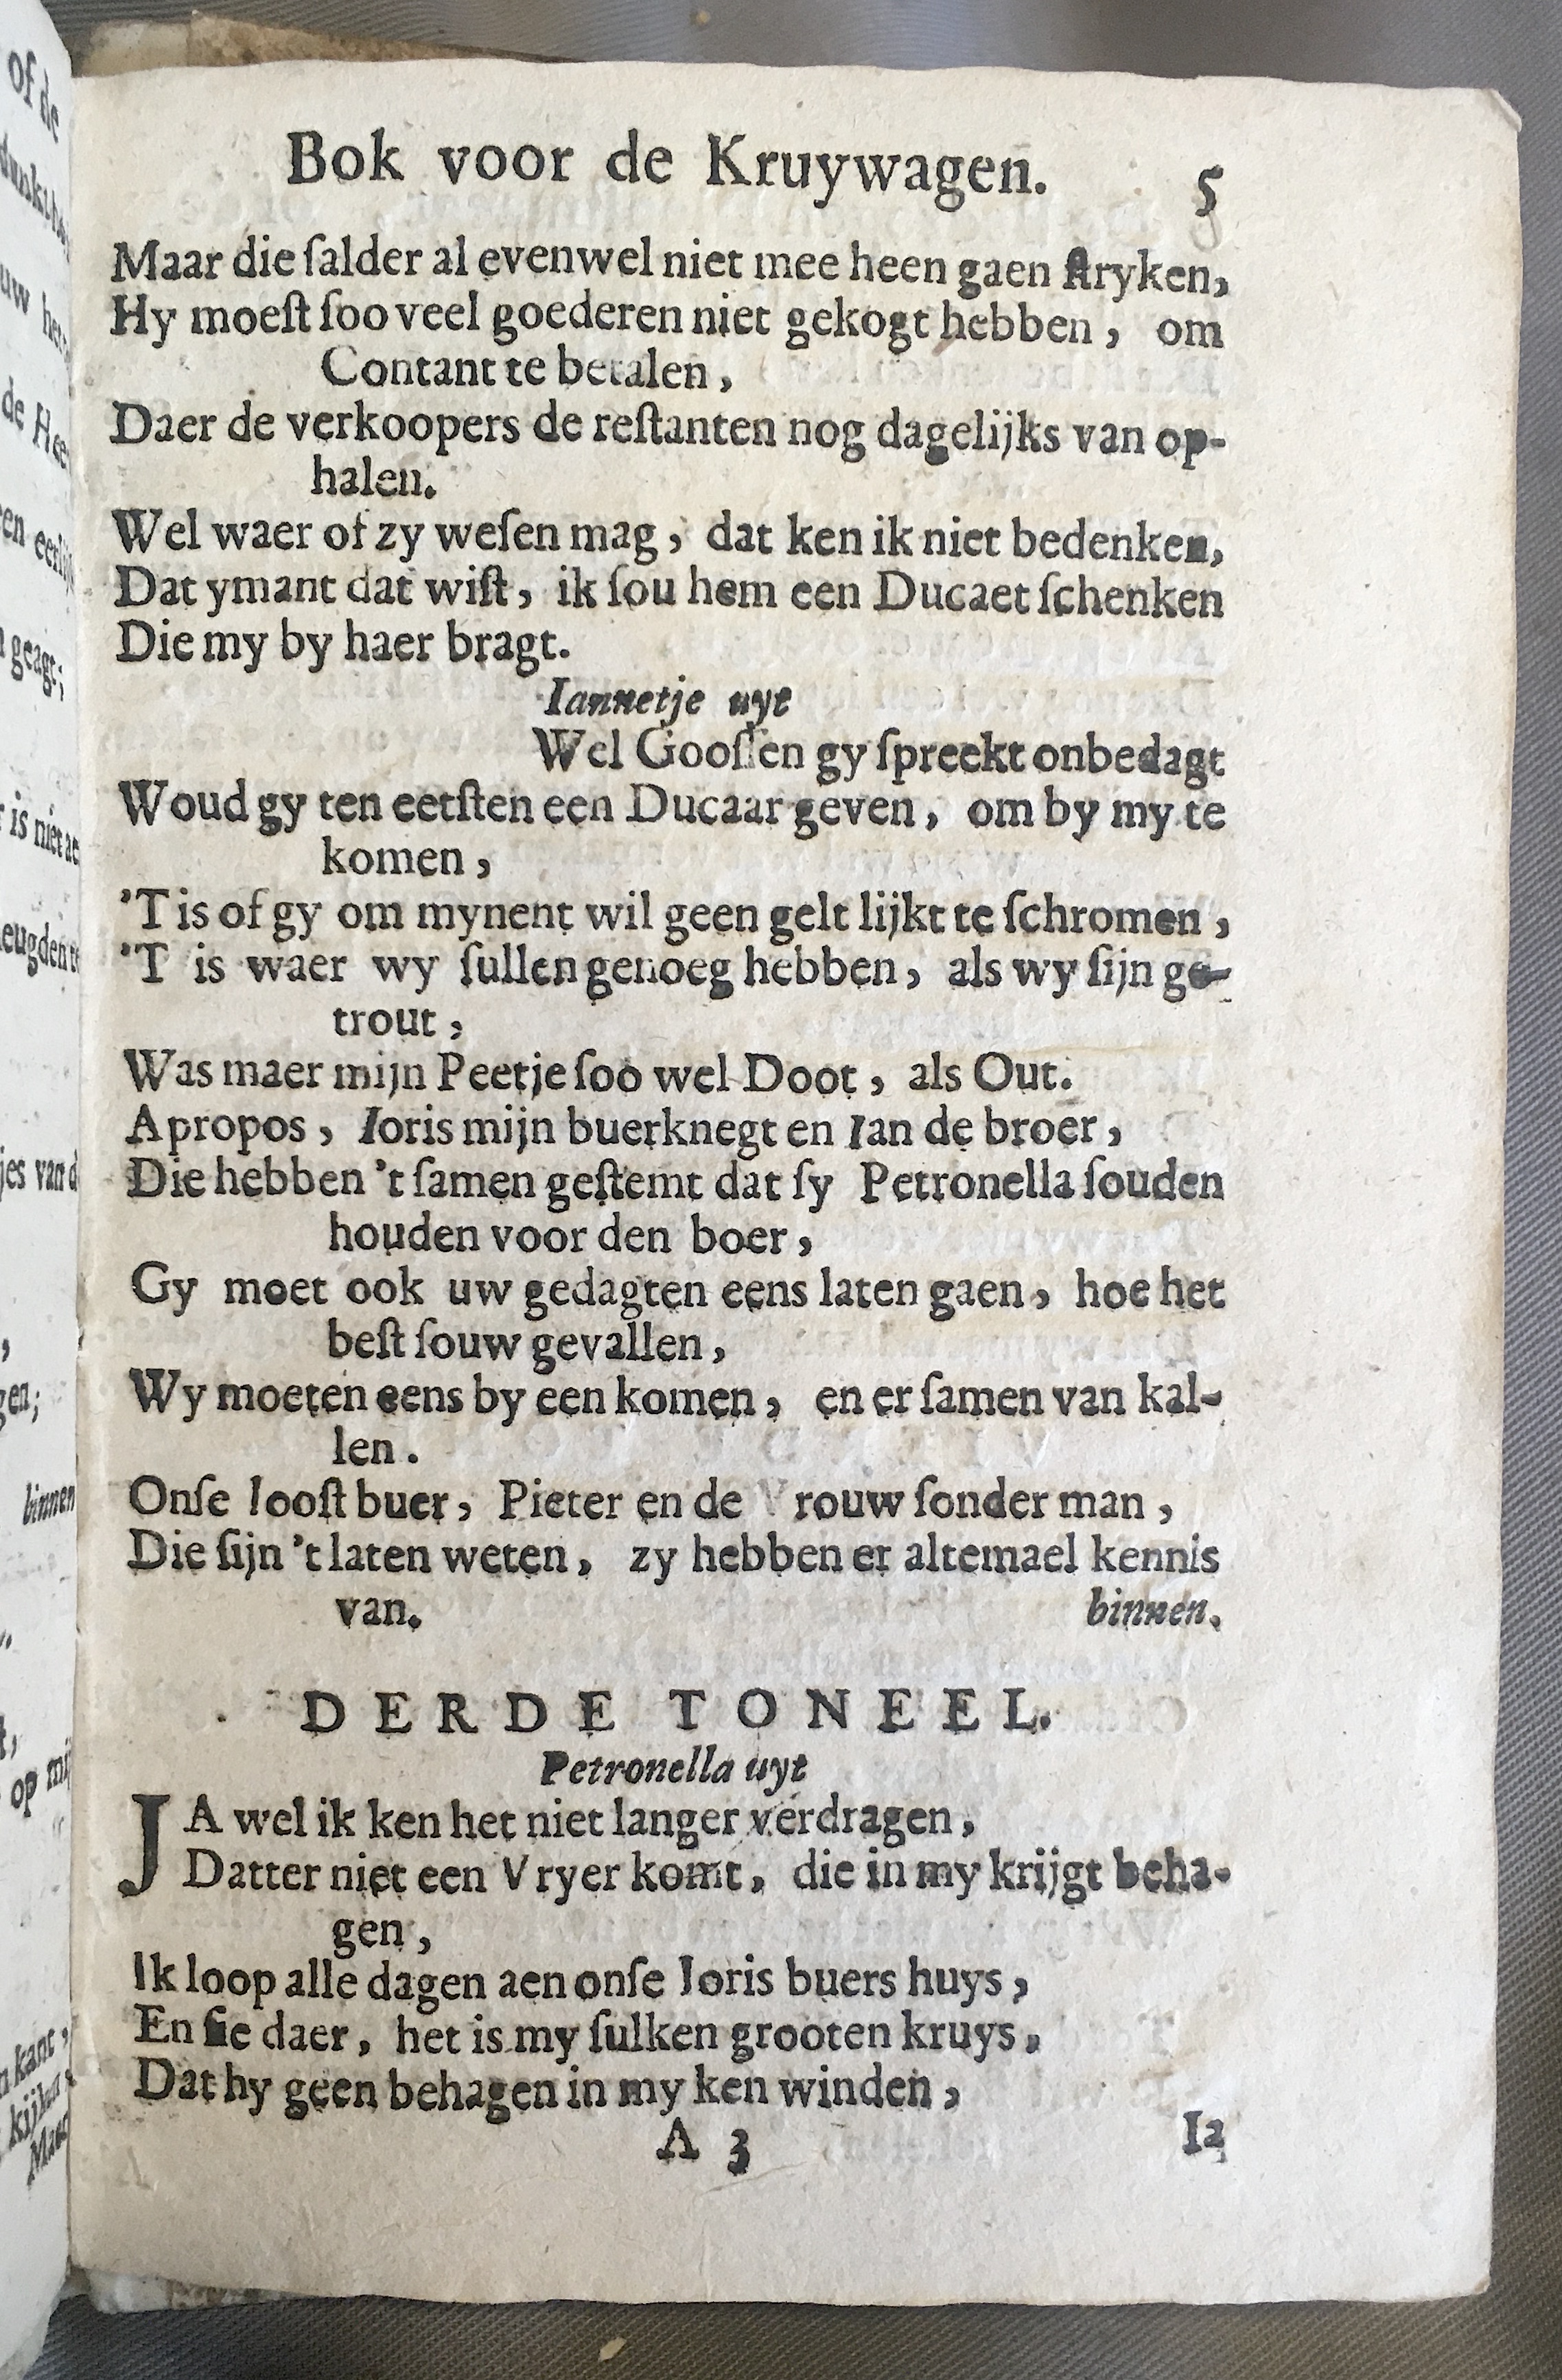 Bok voor de Kruywagen. 5
Maar die ſalder al evenwel niet mee heen gaen ſtryken,
Hy moeſt ſoo veel goederen niet gekogt hebben, om
Contant te betalen,
Daer de verkoopers de reſtanten nog dagelijks van op-
halen.
Wel waer of zy weſen mag, dat ken ik niet bedenken,
Dat ymant dat wiſt, ik ſou hem een Ducaet ſchenken
Die my by haer bragt.
Iannetje uyt
Wel Gooſſen gy ſpreekt onbedagt
Woud gy ten eetſten een Ducaar geven, om by my te
komen,
'T is of gy om mynent wil geen gelt lijkt te ſchromen,
'T is waer wy ſullen genoeg hebben, als wy ſijn ge-
trout,
Was maer mijn Peetje ſoo wel Doot, als Out.
Apropos, Ioris mijn buerknegt en Ian de broer,
Die hebben 't ſamen geſtemt dat ſy Petronella ſouden
houden voor den boer,
Gy moet ook uw gedagten eens laten gaen, hoe het
beſt ſouw gevallen,
Wy moeten eens by een komen, en er ſamen van kal-
len.
Onſe Iooſt buer, Pieter en de Vrouw ſonder man,
Die ſijn 't laten weten, zy hebben er altemael kennis
van. binnen.
DERDE TONEEL.
Petronella uyt
JA wel ik ken het niet langer verdragen,
Datter niet een Vryer komt, die in my krijgt beha-
gen,
Ik loop alle dagen aen onſe Ioris buers huys,
En ſie daer, het is my ſulken grooten kruys,
Dat hy geen behagen in my ken winden,
A 3 Ia
of de
de Hee
geagt;
is niet
jes van d
gen;
binnen
op mij
kant,